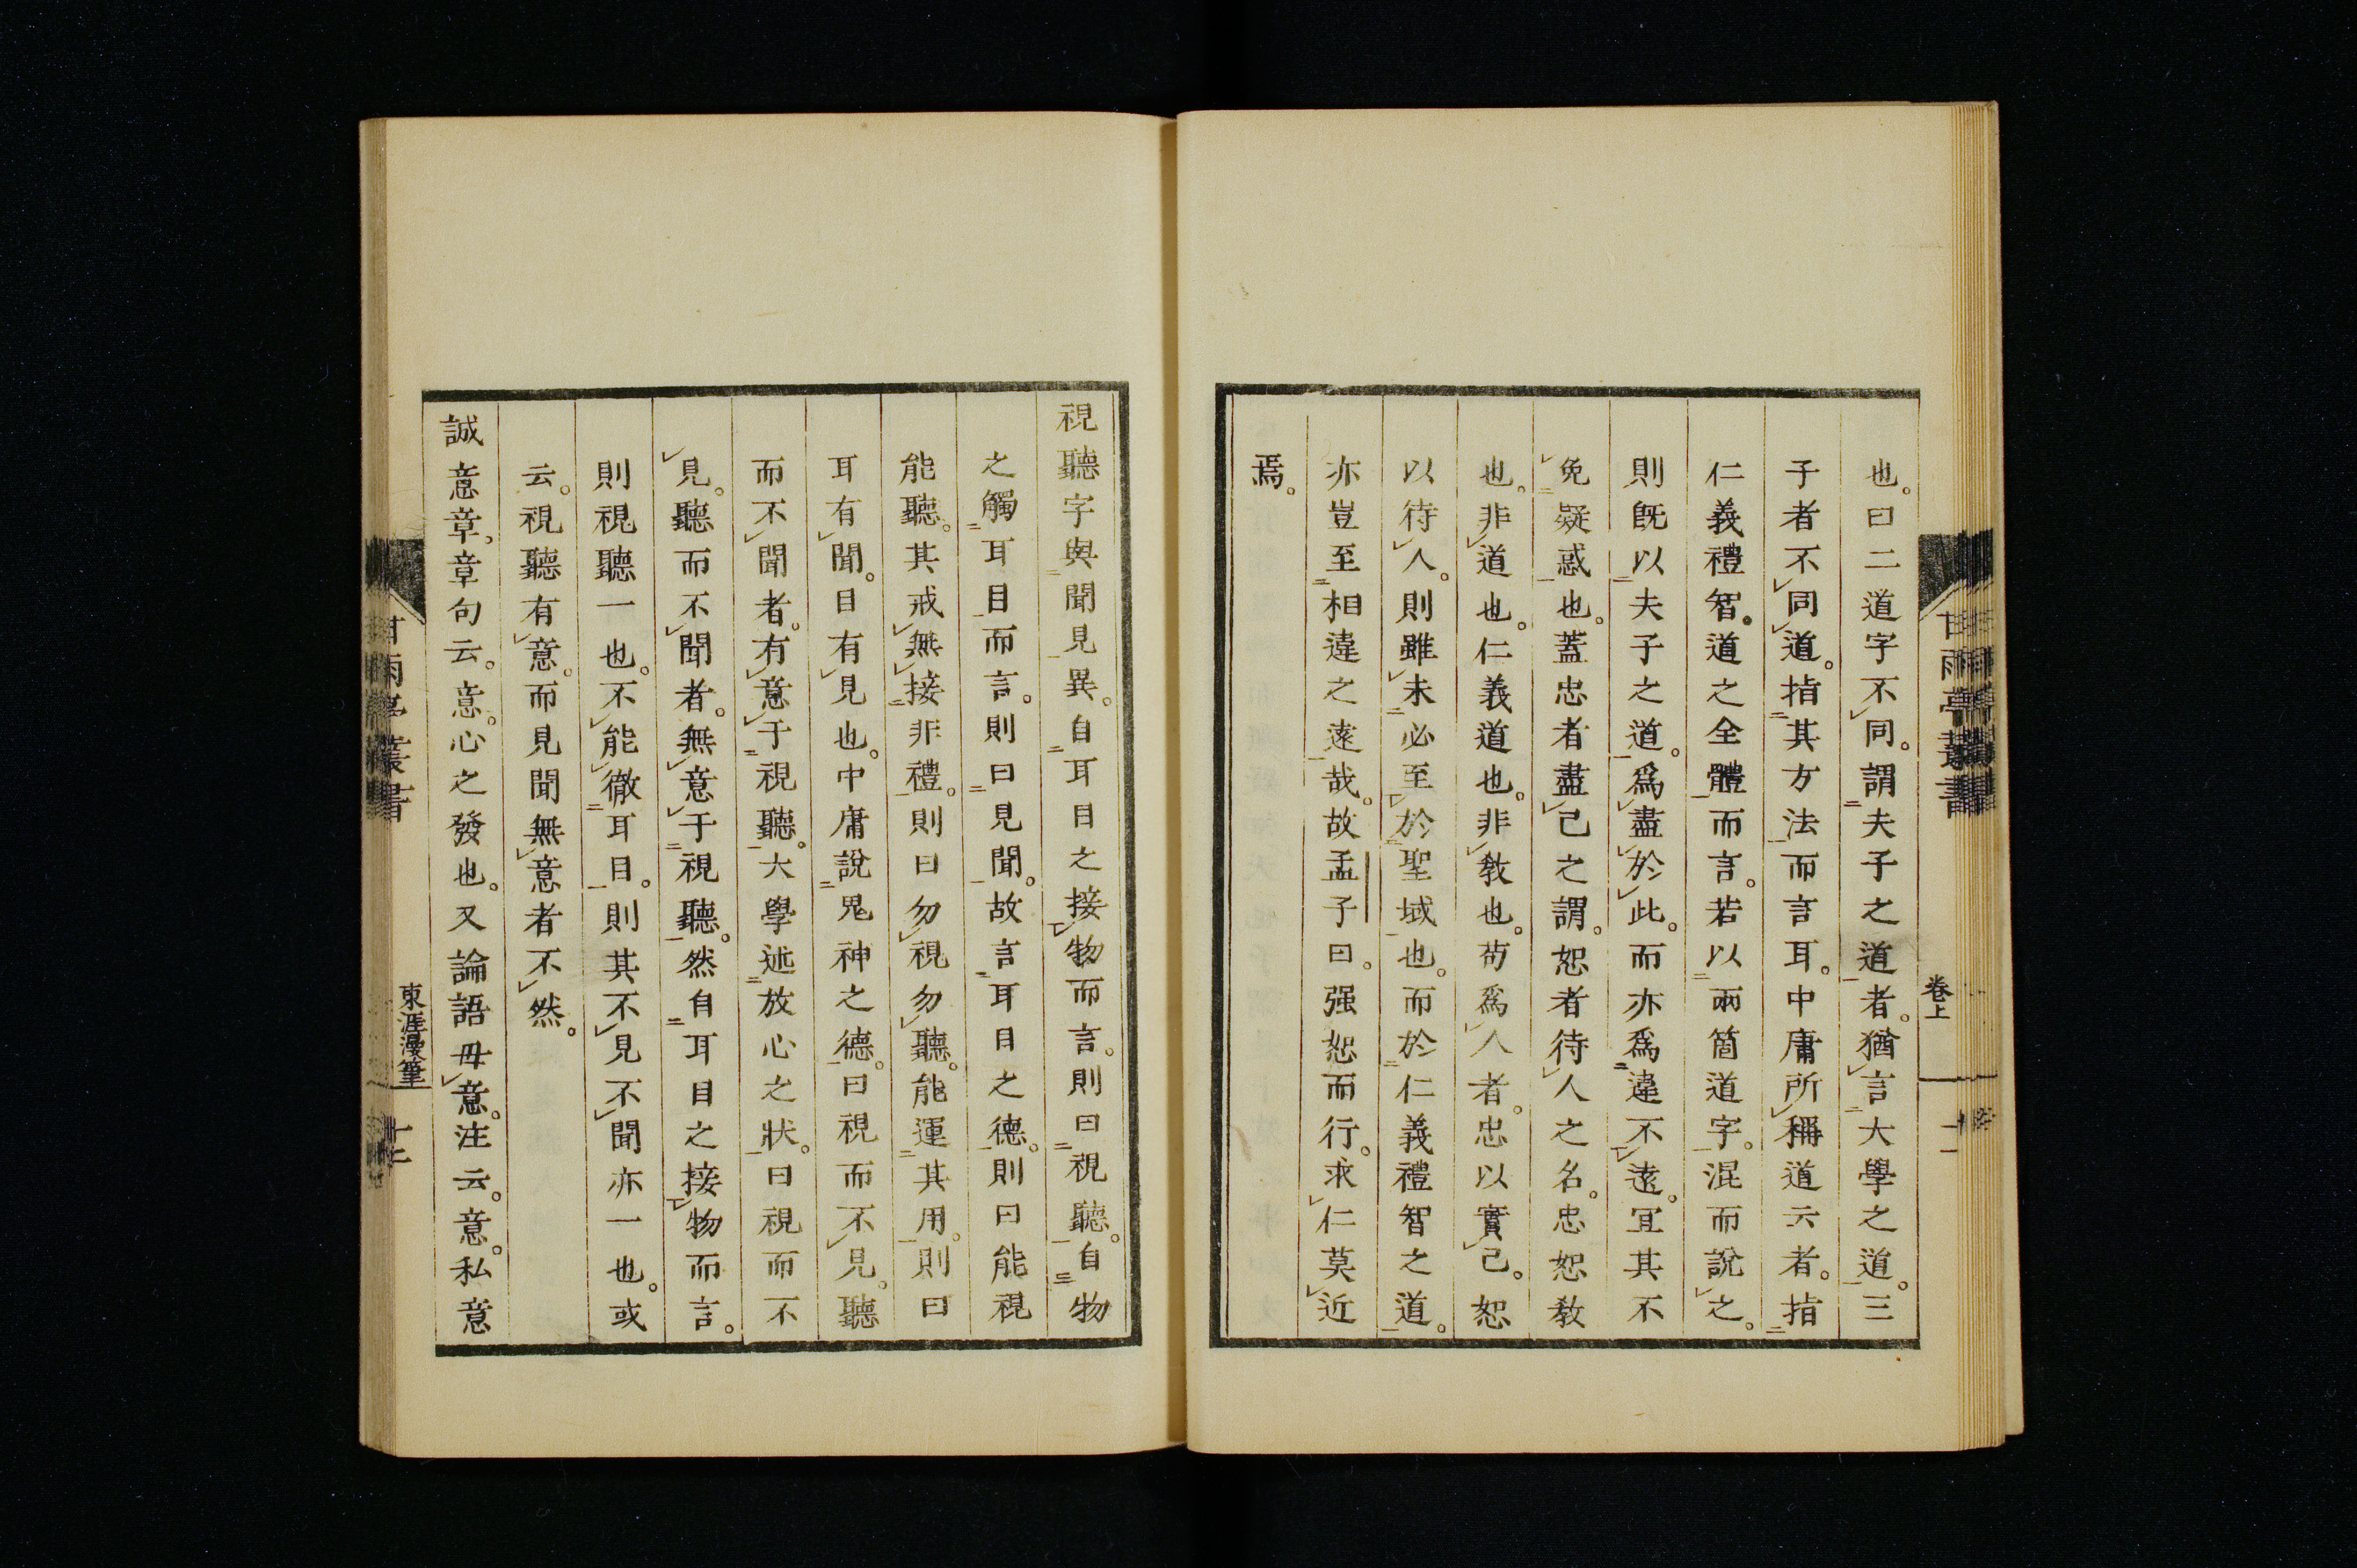 也。曰二道字不同。謂夫子之道者。猶言大學之道。三
子者不同道。指其方法而言耳。中庸所稱道云者。指
仁義禮智。道之全體而言。若以兩箇道字。混而說之。
則旣以夫子之道。爲盡於此。而亦爲違不遠。冝其不
免疑惑也。蓋忠者盡己之謂。恕者待人之名。忠恕敎
也。非道也。仁義道也。非敎也。苟爲人者。忠以實己。恕
以待人。則雖未必至於聖域也。而於仁義禮智之道。
亦豈至相違之遠哉。故孟子曰。强恕而行。求仁莫近
焉。
甘雨亭叢書
卷上
視聽字與聞見異。自耳目之接物而言。則曰視聽。自物
之觸耳目而言。則曰見聞。故言耳目之德。則曰能視
能聽。其戒無接非禮。則曰勿視勿聽。能運其用。則曰
耳有聞。目有見也。中庸說鬼神之德。曰視而不見。聽
而不聞者。有意于視聽。大學述放心之狀。曰視而不
見。聽而不聞者。無意于視聽。然自耳目之接物而言。
則視聽一也。不能徹耳目。則其不見不聞亦一也。或
云。視聽有意。而見聞無意者不然。
誠意章。章句云。意。心之發也。又論語毋意。注云。意。私意
甘雨亭叢書
東涯漫筆